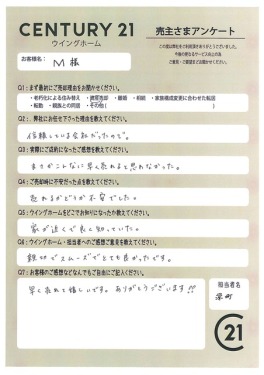 CENTURY 21
ウイングホーム
売主さまアンケート
この度は弊社をご利用頂きありがとうございました。
今後の更なるサービス向上の為
ご意見・ご要望をお聞かせください。
お客様名: M 様
Q1:まず最初にご売却理由をお聞かせください。
・老朽化による住み替え ・資産売却 ・離婚 ・相続 ・家族構成変更に合わせた転居
・転勤 ・親族との同居 ・その他(
Q2:弊社にお任せ下さった理由をお聞かせください。
信頼している会社だったので。
Q3:実際にご成約になったご感想を教えてください。
まさかこんなに早く売れると思わなかった。
Q4:ご売却時に不安だった点を教えてください。
売れるかどうか不安でした。
Q5:ウイングホームをどこでお知りになったか教えてください。
家が近くで良く知っていた。
Q6:ウイングホーム・担当者へのご感想ご意見を教えてください。
親切でスムーズでとても良かったです。
Q7:お客様のご感想などなんでもご自由にご記入ください。
早く売れて嬉しいです。ありがとうございます!!
担当者名
21